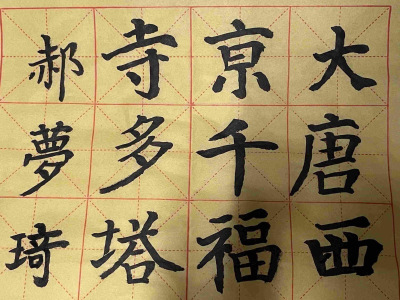 大唐西
亰千福
寺多塔
郝夢琦